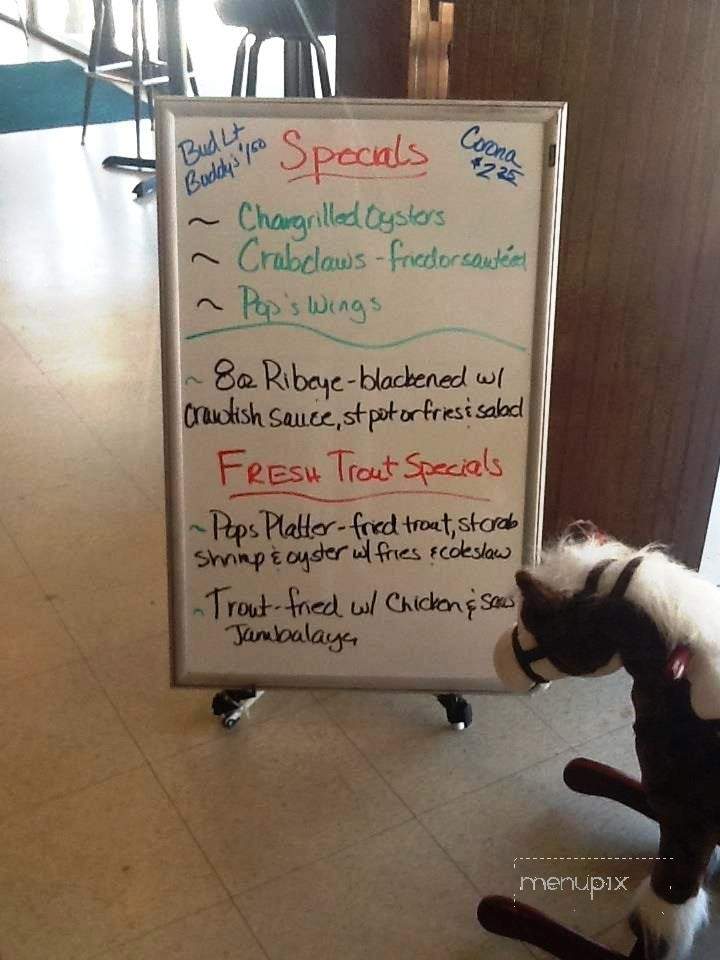 Bud Lt
Buddy's $1.50
Specials
Corona
$2.25
~ Chargrilled Oysters
~ Crabclaws - fried or sautéed
~ Pop's Wings
~ 8oz Ribeye - blackened w/
Crawfish sauce, st pot or fries & salad
FRESH Trout Specials
~ Pops Platter - fried trout, st crab
shrimp & oyster w/ fries & coleslaw
~ Trout - fried w/ Chicken & Saus
Jambalaya
menupix